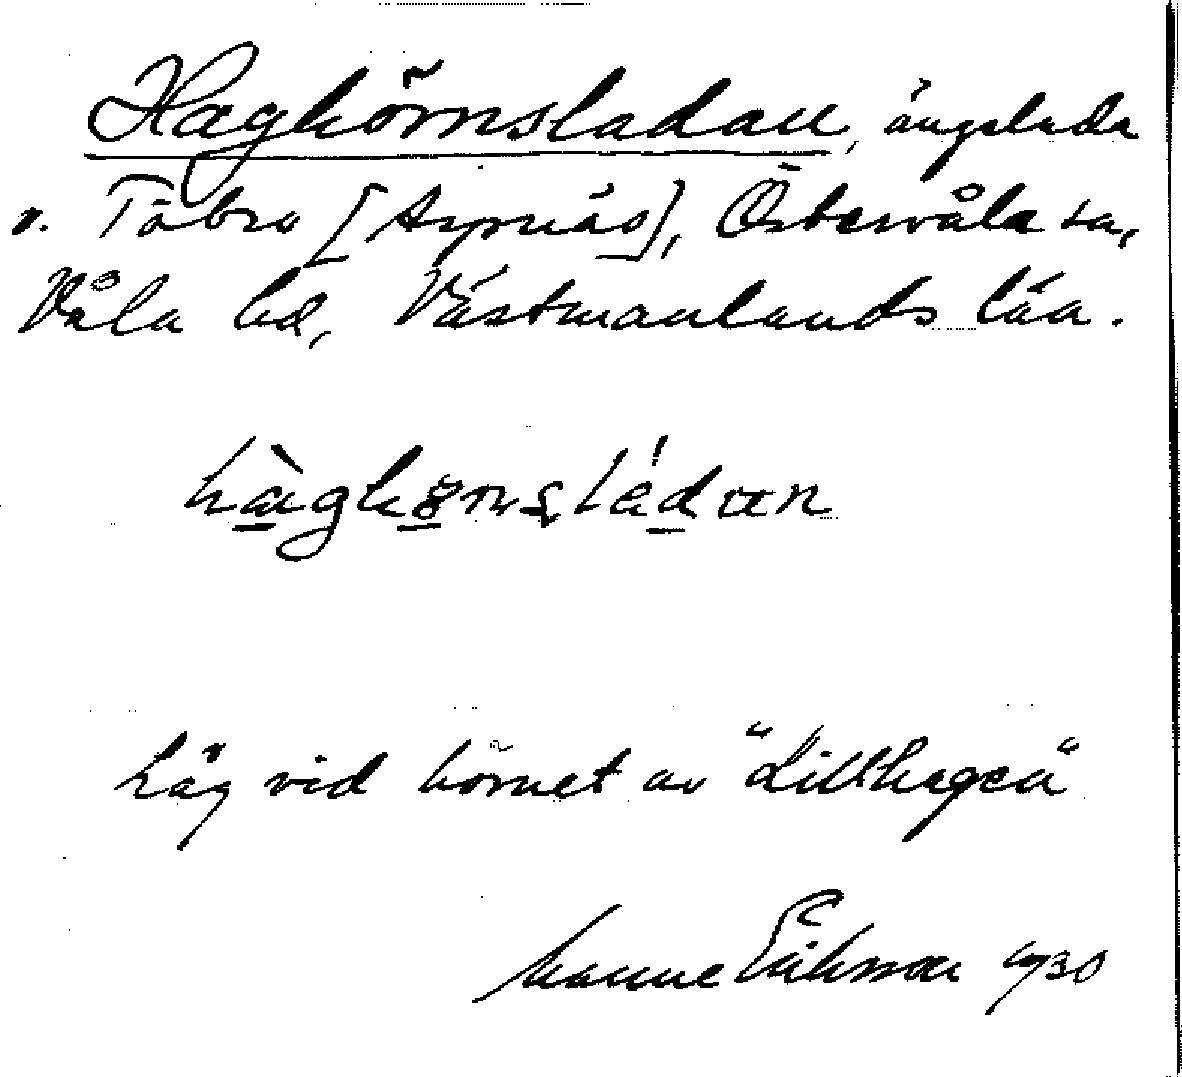 Haghörnsladan, ängslada
v. Tobro [Aspnäs], Östervåla sn,
Våla hd, Västmanlands län.
Låg vid hörnet av "Lillhagen"
Manne Eriksson 1930